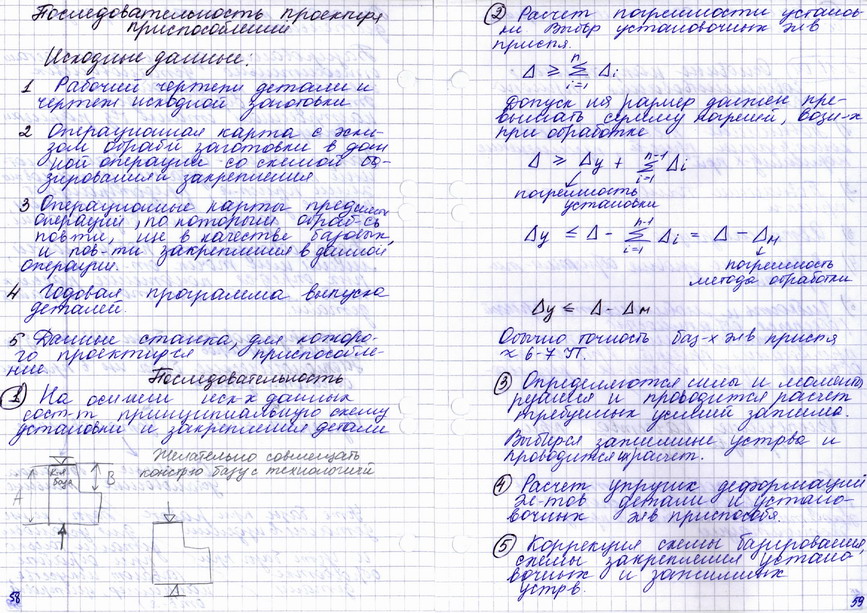 Последовательность проектиря
приспособлений
Исходные данные.
1 Рабочий чертеж детали и
чертеж исходной заготовки
2 Операционная карта с эски-
зом обрабй заготовки в дан
ной операции со схемой ба-
зирования и закрепления
3 Операционные карты
операций, по которым обраб-сь
пов-ти, в качестве базовых,
и пов-ти закрепления в данной
операции.
4 Годовая программа выпуска
деталей.
5 Данные станка, для которо-
го проектирся приспособле-
ние.
Последовательность
1 На основнии исх х данных
сост-т принципиальную схему
установки и закрепления детали
Желательно совмещать
констрю базу с технологичй
А
база
В
58
2 Расчет погрешности установ-
ки Выбор установочных элв
приспя.
Δ ≥ Σ Δi
n
i=1
Допуск на размер должен пре-
вышать сумму погрешй, возн-х
при обработке
Δ ≥ Δу + Σ Δi
n-1
i=1
погрешность
установки
Δу ≤ Δ - Σ Δi = Δ - Δм
n-1
i=1
погрешность
метода обработки
Δу ≤ Δ - Δм
Обычно точность баз-х элв приспя
x 6-7
3 Определяются силы и моменты
резания и проводится расчет
требуемых усилий зажима.
Выбирся зажимные устрва и
проводится расчет.
4 Расчет упругих деформаций
эле-тов детали и устано-
вочных элв приспособя.
5 Коррекция схемы базирования
схемы закрепления устано
вочных и зажимных
устрв.
59